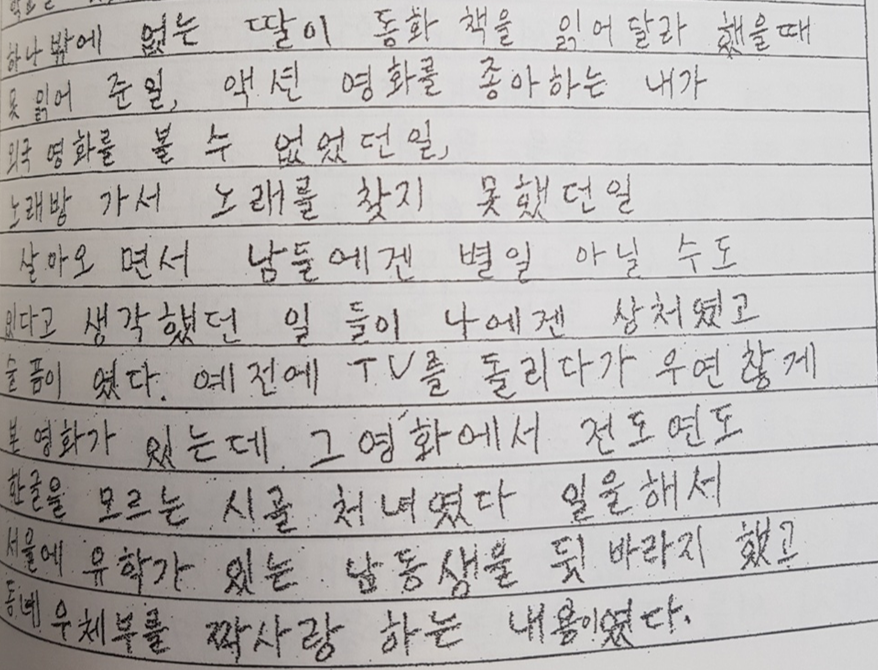 하나밖에 없는 딸이 동화 책을 읽어달라 했을때
못 읽어 준일, 액션 영화를 좋아하는 내가
외국 영화를 볼 수 없었던일,
노래방 가서 노래를 찾지 못했던일
살아오 면서 남들에겐 별일 아닐 수도
있다고 생각했던 일 들이 나에겐 상처였고
슬픔이 였다. 예전에 TV를 돌리다가 우연찮게
본 영화가 있는데 그 영화에서 전도연도
한글을 모르는 시골 처녀였다 일을해서
서울에 유학가 있는 남동생을 뒷 바라지 했고
동네 우체부를 짝사랑 하는 내용이였다.